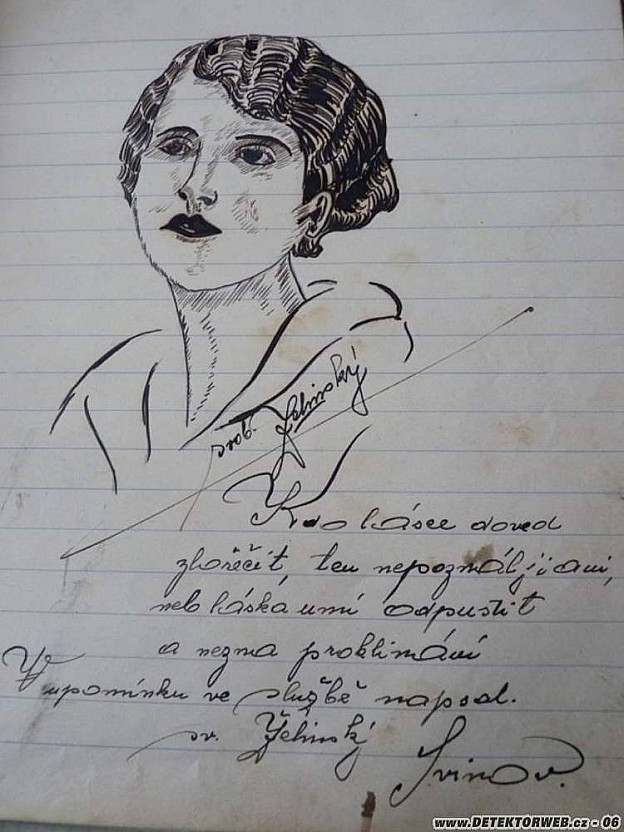 srob. Želinský
Kdo lásce doved
zlořečit, ten nepoznal ji ani,
neb láska umí odpustit
a nezma proklímání
V upomínku ve službě napsal.
sv. Želinský
Svinov.
www.DETEKTORWEB.cz - 06